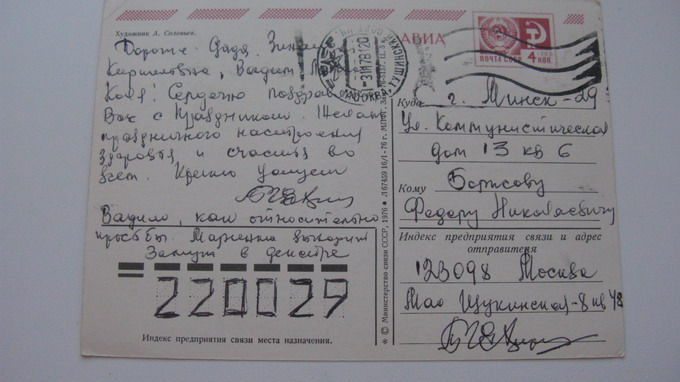 Художник А. Соловьев.
АВИА
ПОЧТА СССР
4
КОП.
31 1 78 1 20
МОСКВА
Дорогие Дядя,
Кирилловна, Вадим
Коля! Сердечно поздравл
Вас с праздником! Желаем
праздничного настроения
здоровья и счастья во
всем. Крепко целуем
Вадим, как относительно
просьбы. Марченко выходит
замуж в декабре
220029
Индекс предприятия связи места назначения.
* © Министерство связи СССР, 1976 * Л 67459 16/I-76 г. МПФГ.
Куда г. Минск-29
Ул. Коммунистическая
дом 13 кв 6
Кому Борисову
Федору Николаевичу
Индекс предприятия связи и адрес
отправителя
123098 Москва
Мал Щукинская-8 кв 48